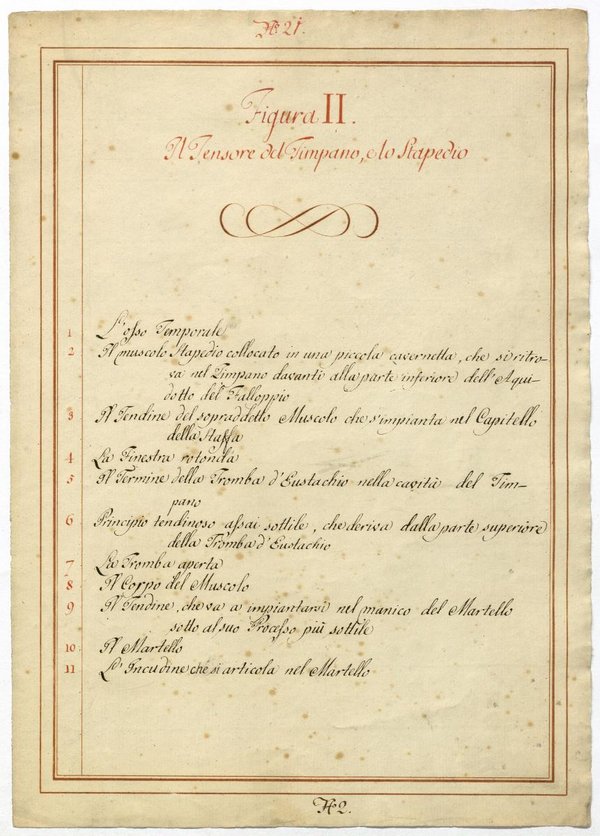 N.° 21.
Figura II.
Il Tensore del Timpano, e lo Stapedio
1 L'osso Temporale
2 Il muscolo Stapedio collocato in una piccola cavernetta, che si ritro-
va nel Timpano davanti alla parte inferiore dell'Aqui-
dotto del Falloppio
3 Il Tendine del sopraddetto Muscolo che s'impianta nel Capitello
della Staffa
4 La Finestra rotonda
5 Il Termine della Tromba d'Eustachio nella cavità del Tim-
pano
6 Principio tendinoso assai sottile, che deriva dalla parte superiore
della Tromba d'Eustachio
7 La Tromba aperta
8 Il Corpo del Muscolo
9 Il Tendine, che va a impiantarsi nel manico del Martello
sotto al suo Processo più sottile
10 Il Martello
11 L'Incudine che si articola nel Martello
N.° 2.